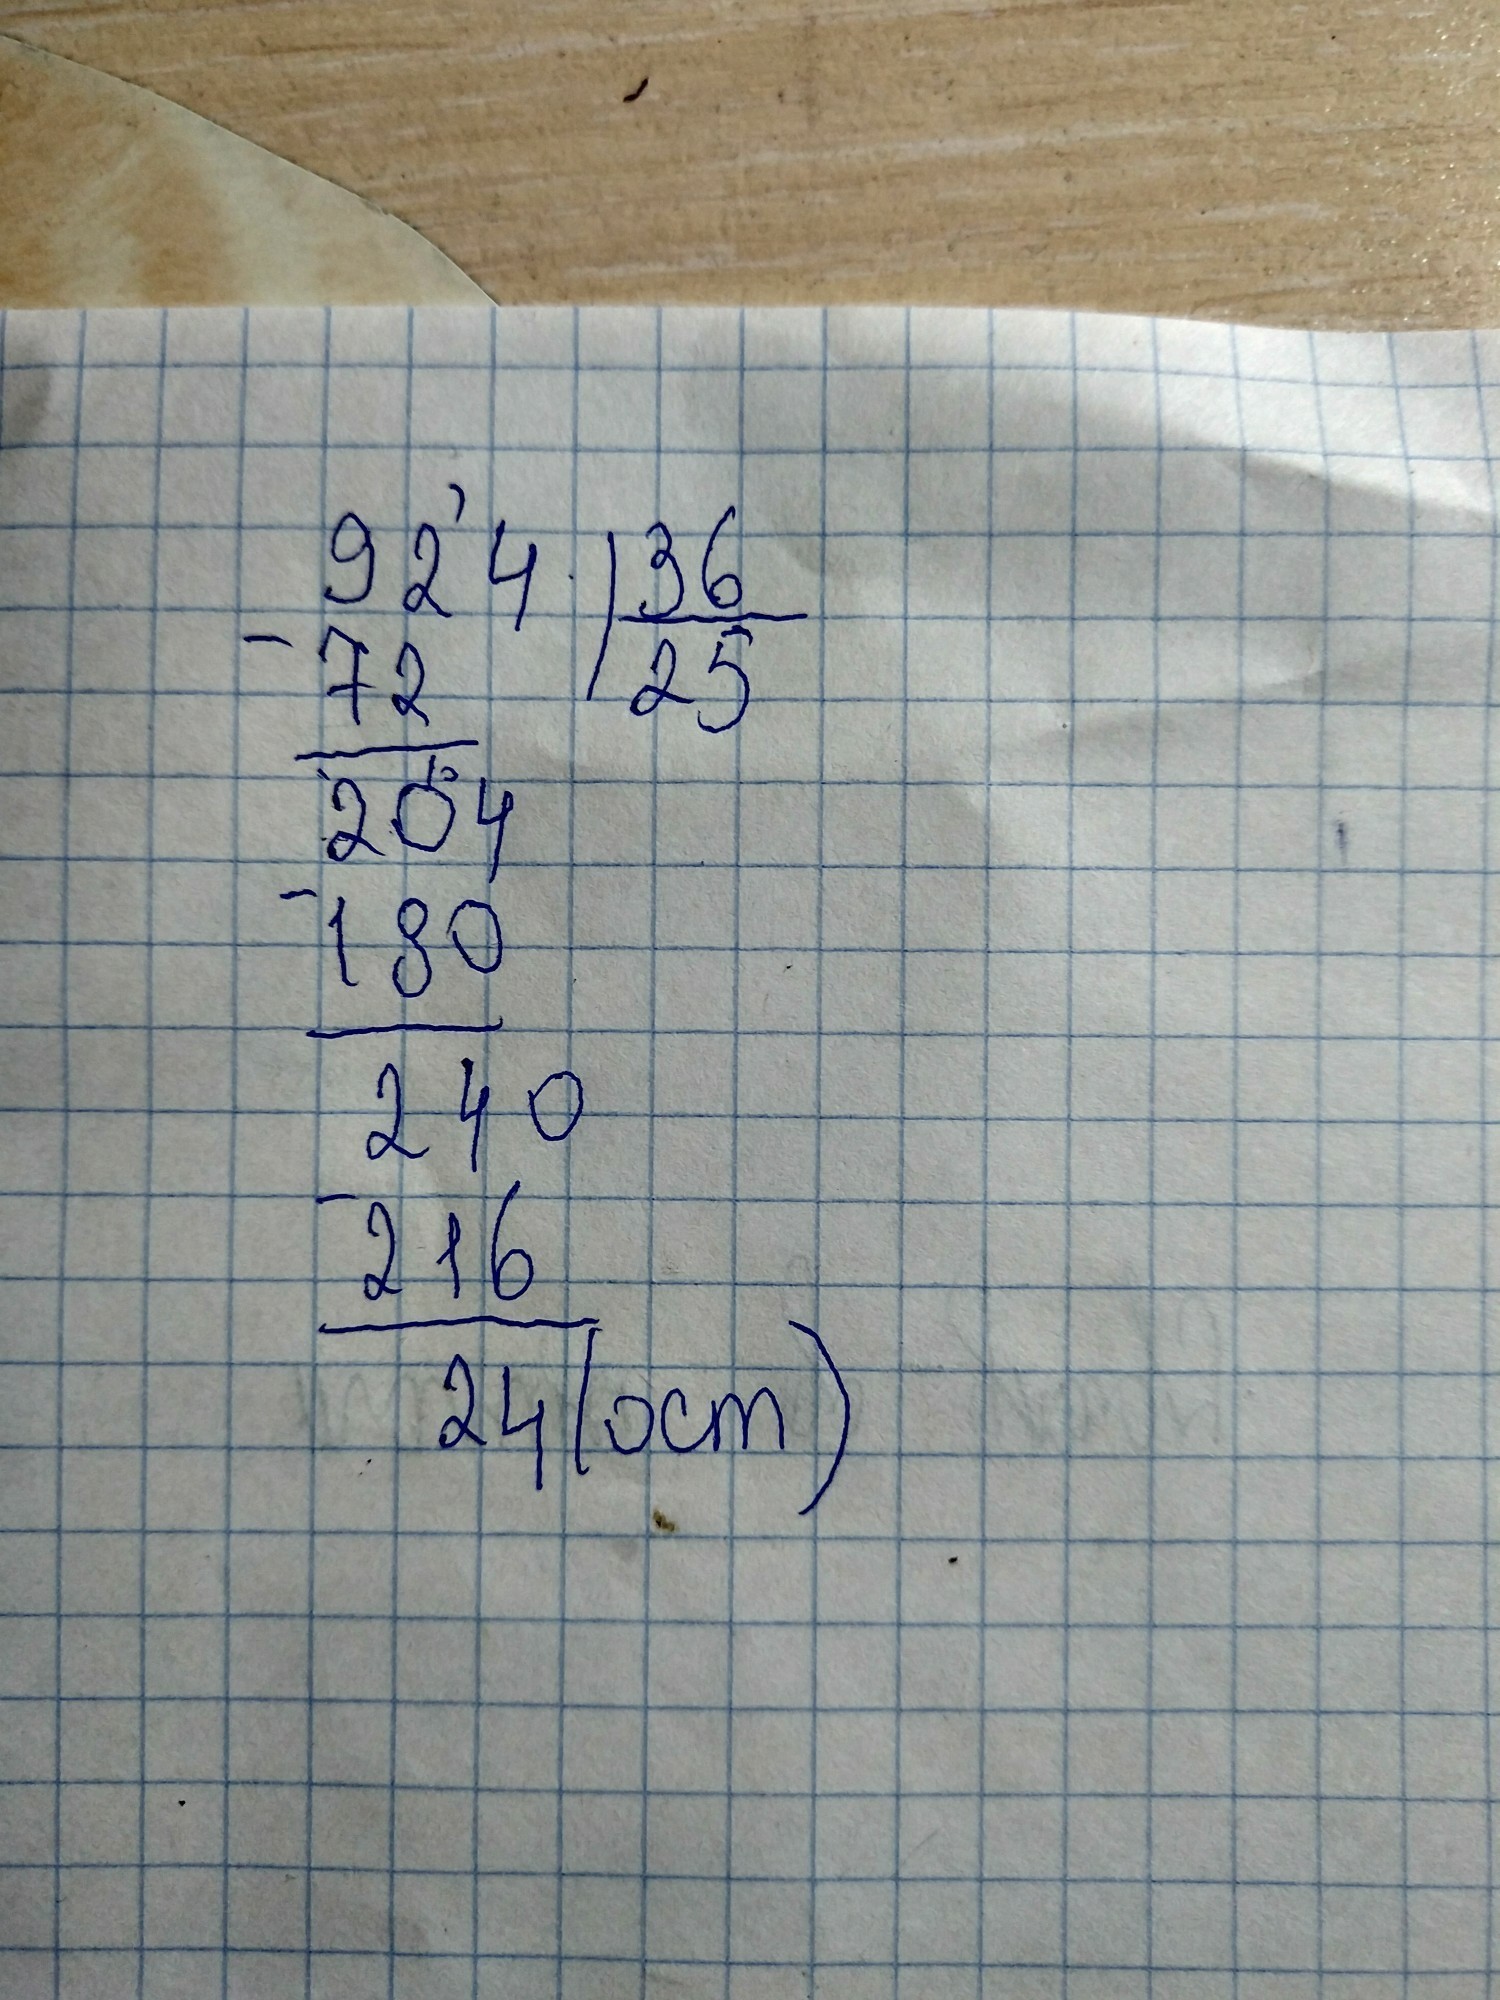 924 36
- 72 25
204
- 180
240
- 216
24 (ост)